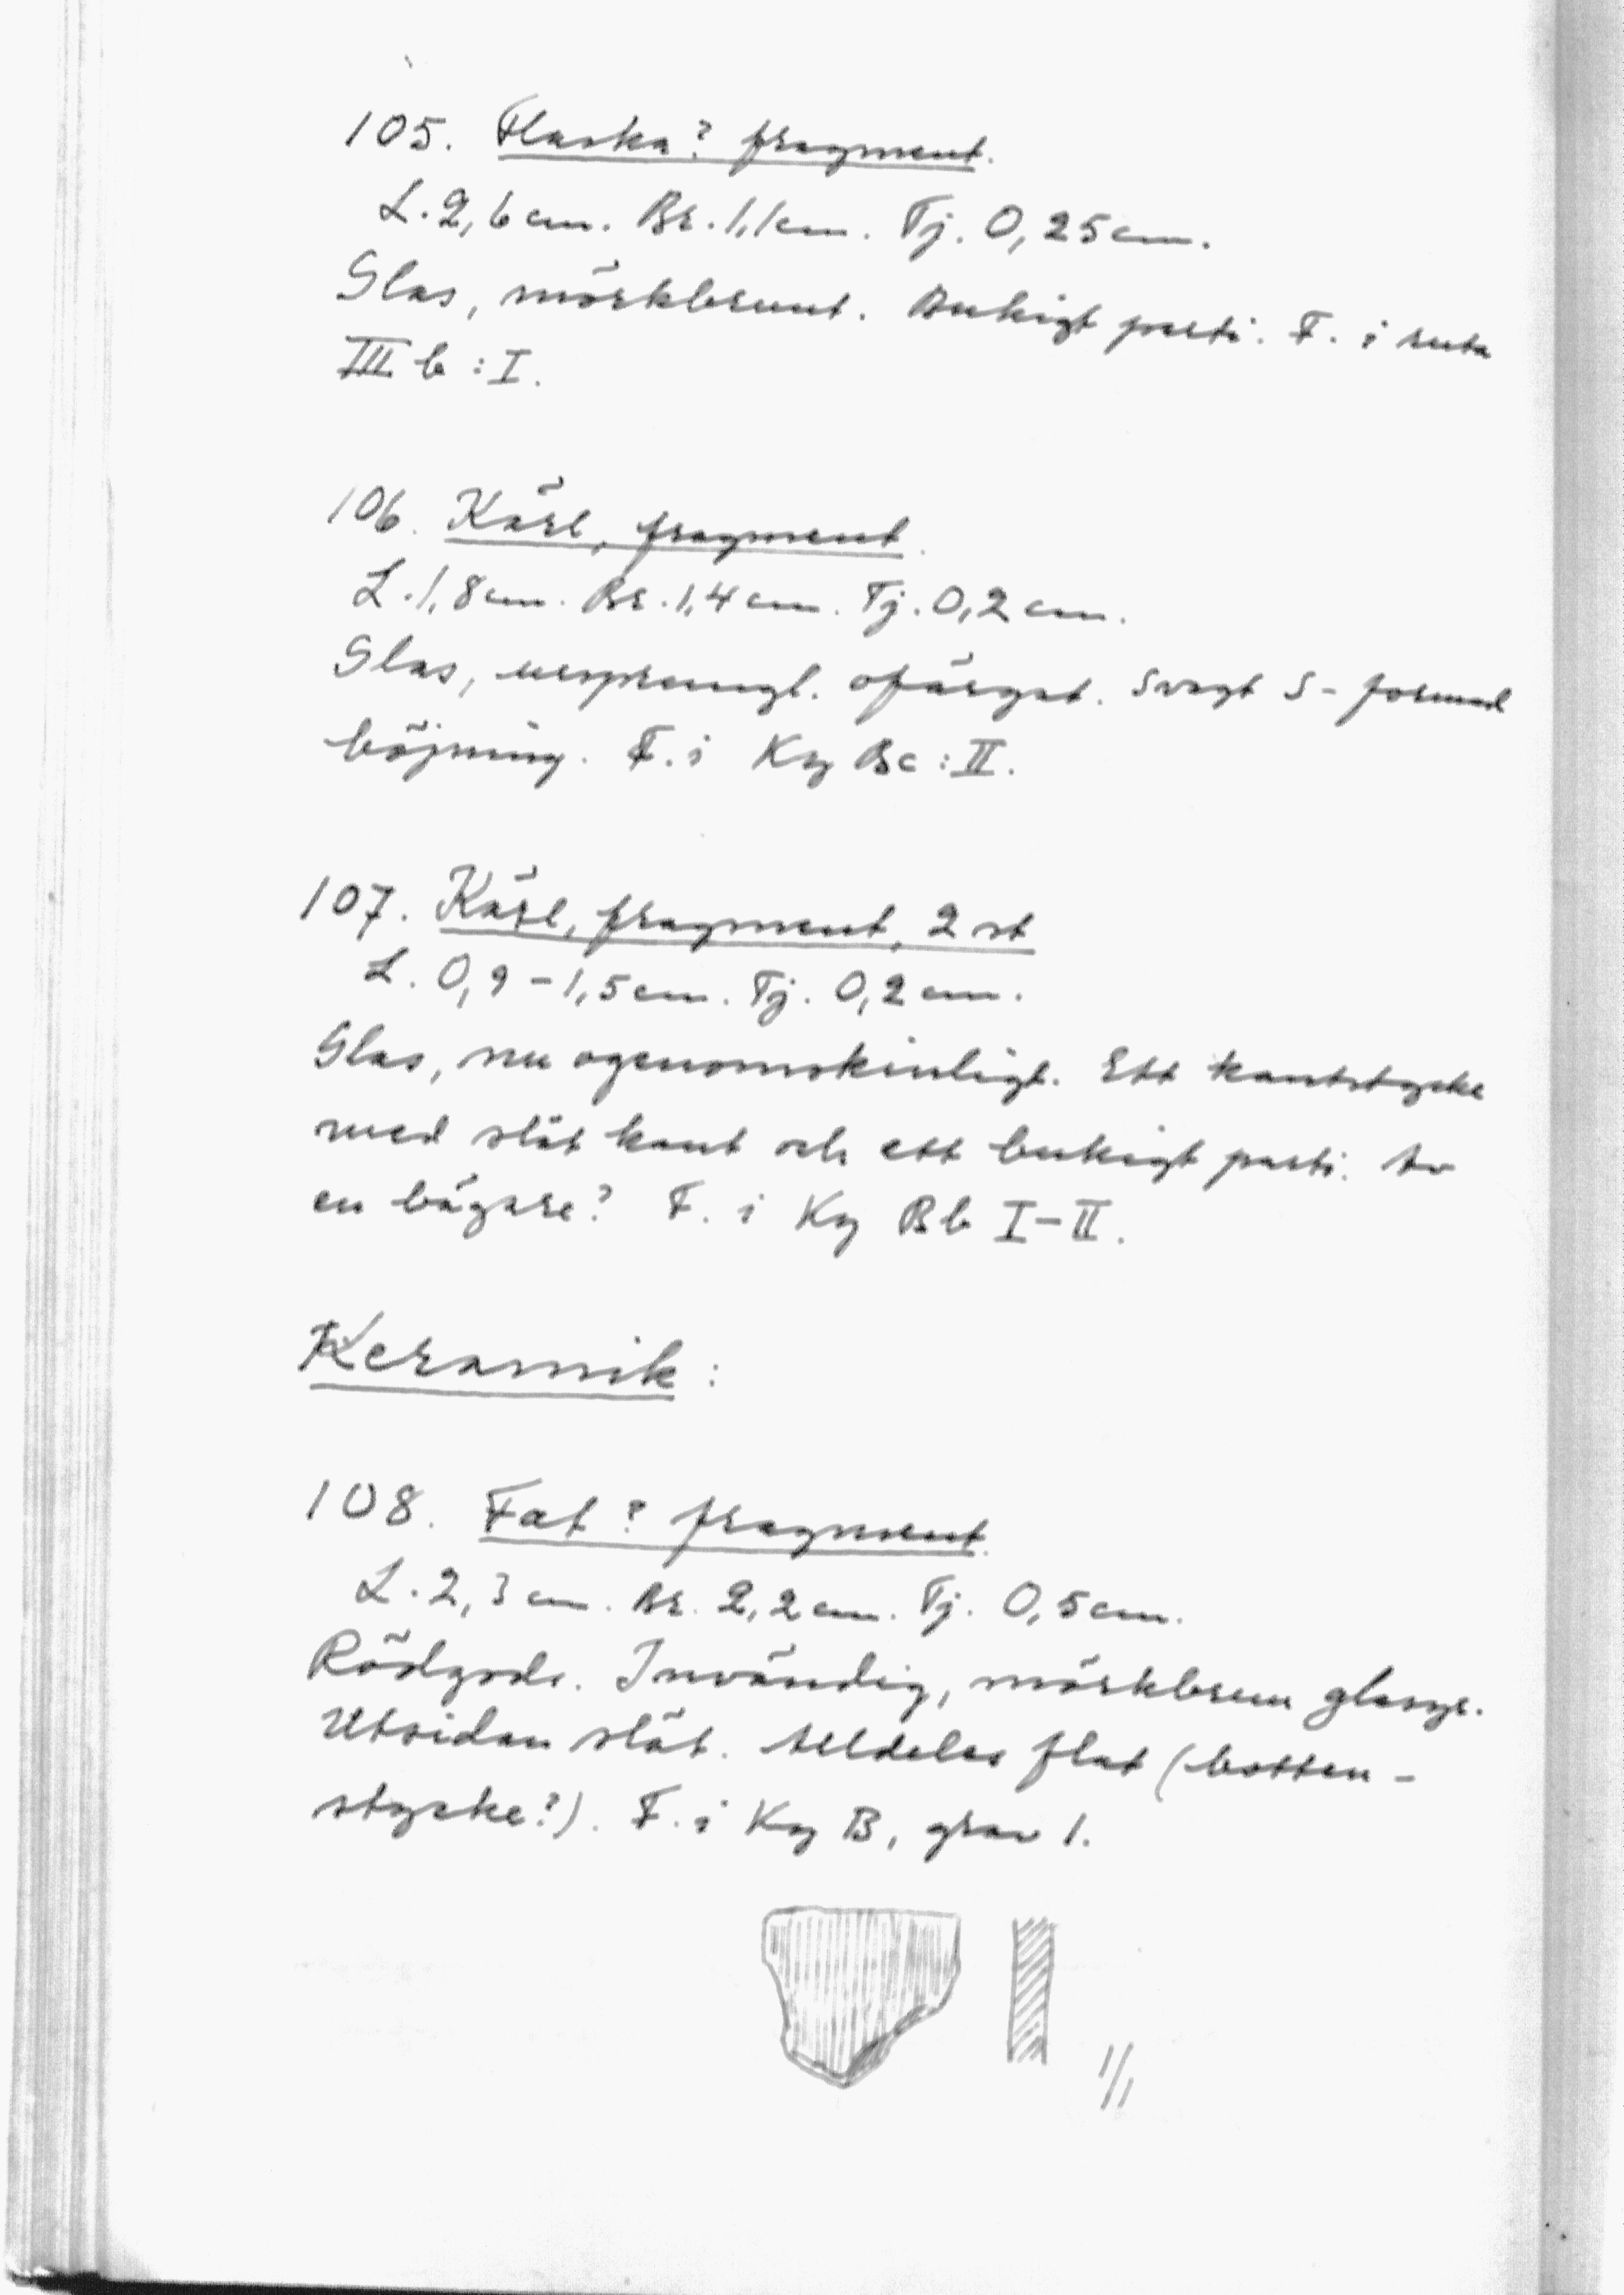 105. Flaska? fragment.
L. 2,6 cm. Br. 1,1 cm. Tj. 0,25 cm.
Glas, mörkbrunt. Bukigt parti. F. i ruta
III b : I.
106. Kärl, fragment.
L. 1,8 cm. Br. 1,4 cm. Tj. 0,2 cm.
Glas, ursprungl. ofärgat. Svagt S-formad
böjning. F. i Kg Bc : II.
107. Kärl, fragment, 2 st
L. 0,9 - 1,5 cm. Tj. 0,2 cm.
Glas, nu ogenomskinligt. Ett kantstycke
med slät kant och ett bukigt parti. Av
en bägare? F. i Kg Bb I-II.
Keramik:
108. Fat? fragment.
L. 2,3 cm. Br. 2,2 cm. Tj. 0,5 cm.
Rödgods. Invändig, mörkbrun glasyr.
Utsidan slät. Alldeles flat (botten-
stycke?). F. i Kg B, grav 1.
1/1